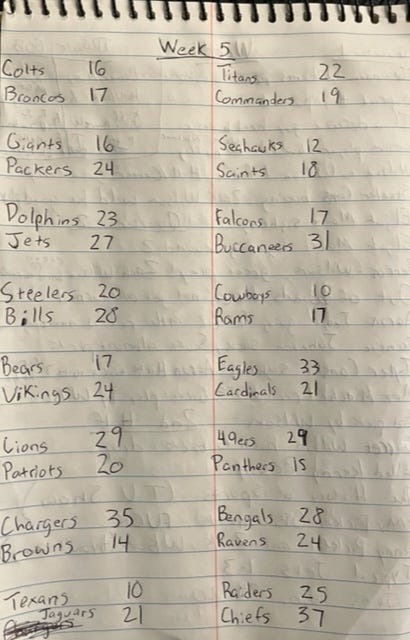 Week 5
Colts 16
Broncos 17
Giants 16
Packers 24
Dolphins 23
Jets 27
Steelers 20
Bills 28
Bears 17
Vikings 24
Lions 29
Patriots 20
Chargers 35
Browns 14
Texans 10
Jaguars 21
Titans 22
Commanders 19
Seahawks 12
Saints 18
Falcons 17
Buccaneers 31
Cowboys 10
Rams 17
Eagles 33
Cardinals 21
49ers 29
Panthers 15
Bengals 28
Ravens 24
Raiders 25
Chiefs 37